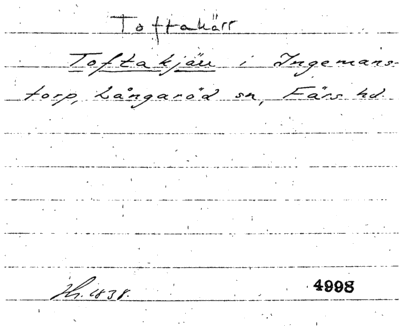 Toftakärr
Toftakjärr i Ingemans-
torp, Långaröd sn, Färs hd.
Hr. 1838. 4998